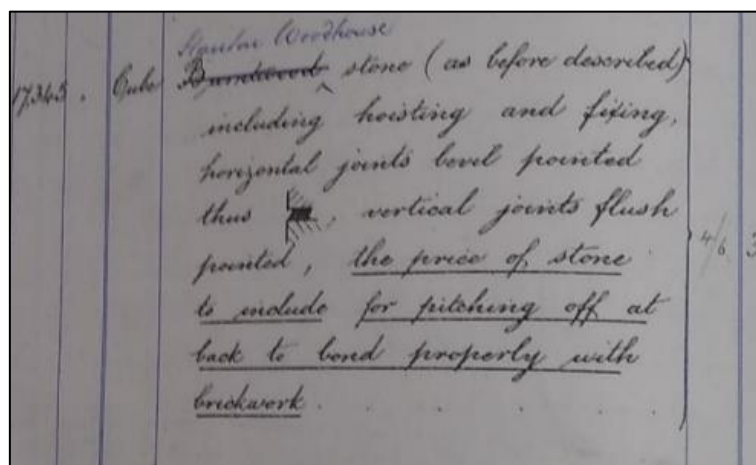 Stanton Woodhouse
17,343. Cube Burntwood stone (as before described)
including hoisting and fixing,
horizontal joints bevel pointed
thus , vertical joints flush
pointed, the price of stone
to include for pitching off at
back to bond properly with
brickwork. 4/6 3